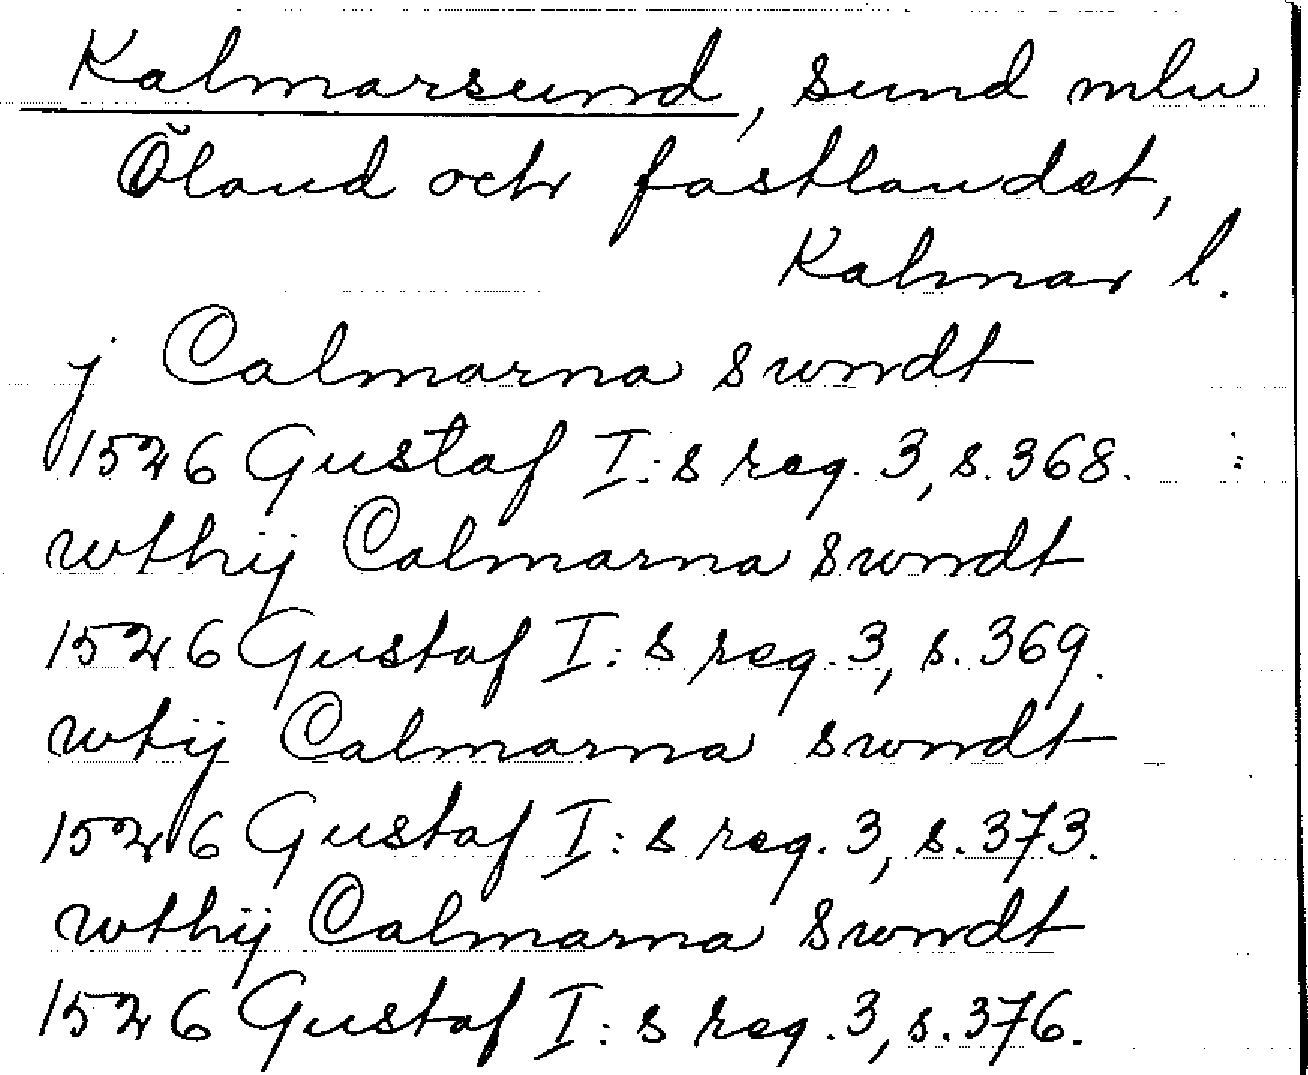 Kalmarsund, sund mlu
Öland och fastlandet,
Kalmar l.
j Calmarna swndt
1526 Gustaf I:s reg. 3, s. 368.
wthij Calmarna swndt
1526 Gustaf I:s reg. 3, s. 369.
wtij Calmarna swndt
1526 Gustaf I:s reg. 3, s. 373.
wthij Calmarna swndt
1526 Gustaf I:s reg. 3, s. 376.